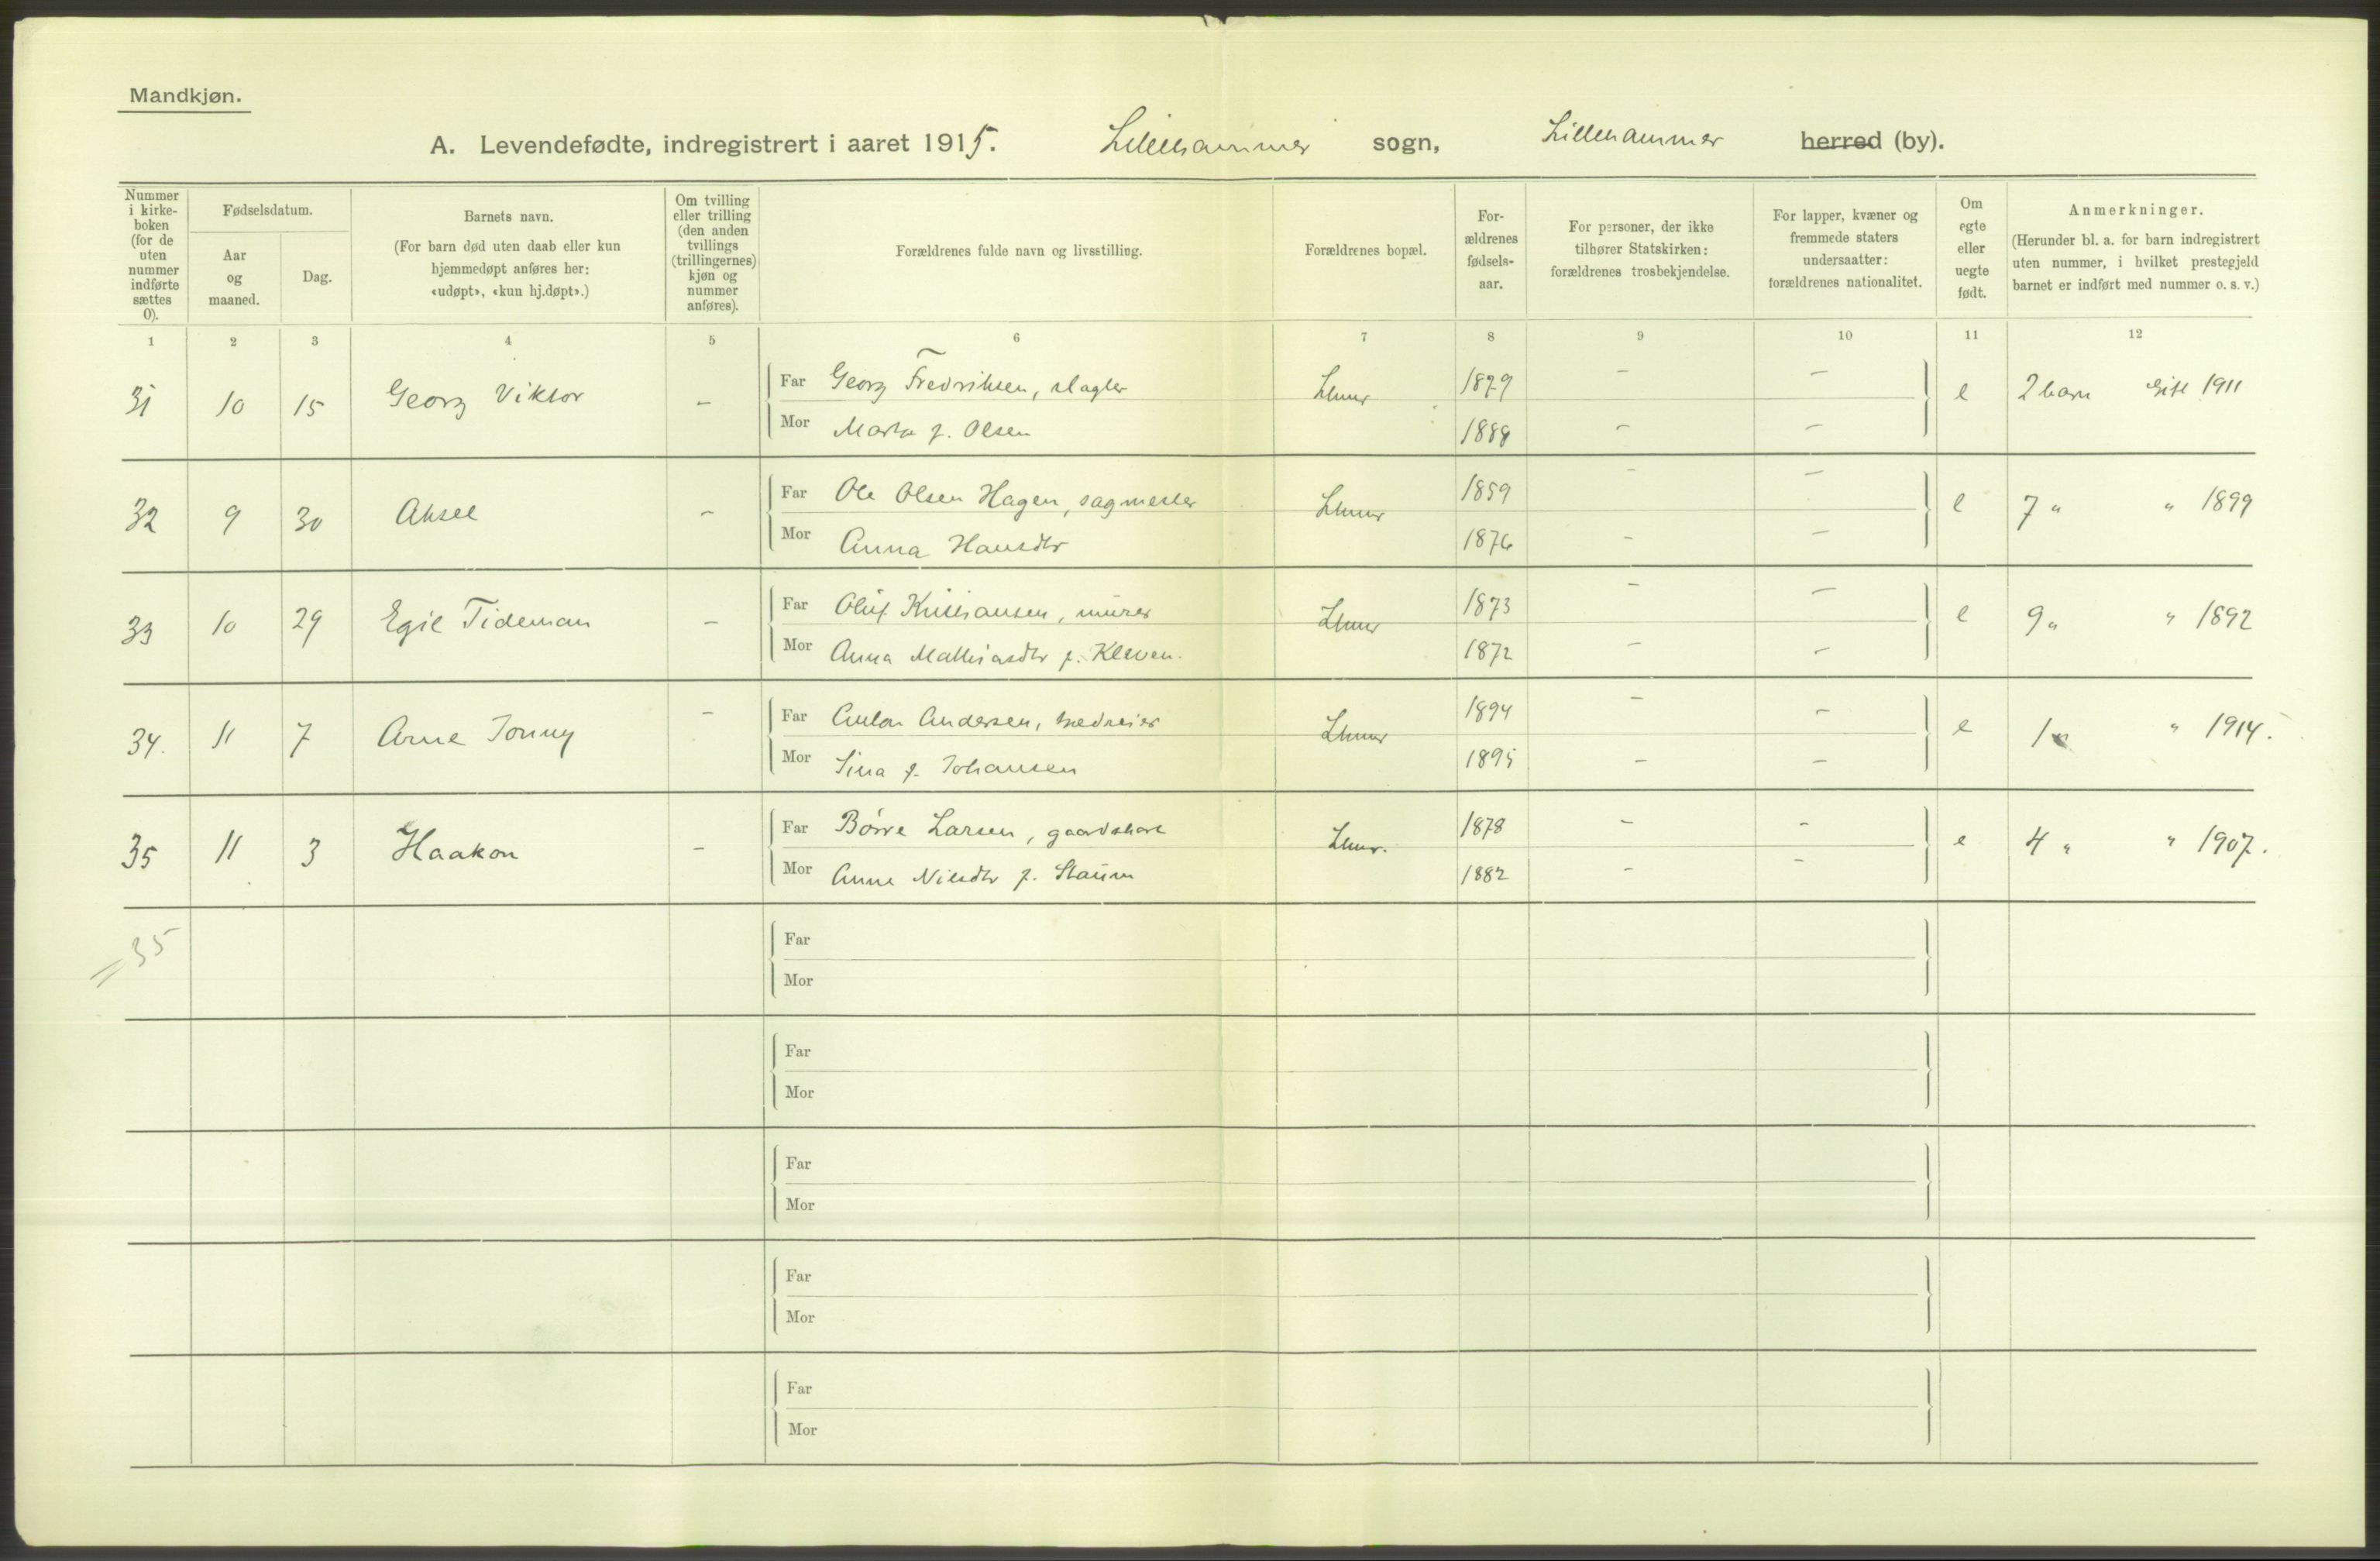 Mandkjøn.
A. Levendefødte, indregistrert i aaret 1915. Lillehammer sogn, Lillehammer herred (by).
Nummer i kirke-boken (for de uten nummer indførte sættes 0).
Fødselsdatum.
Aar og maaned.
Dag.
Barnets navn.
(For barn død uten daab eller kun hjemmedøpt anføres her: «udøpt», «kun hj.døpt».)
Om tvilling eller trilling (den anden tvillings (trillingernes) kjøn og nummer anføres).
Forældrenes fulde navn og livsstilling.
Forældrenes bopæl.
For-ældrenes fødsels-aar.
For personer, der ikke tilhører Statskirken: forældrenes trosbekjendelse.
For lapper, kvæner og fremmede staters undersaatter: forældrenes nationalitet.
Om egte eller uegte født.
Anmerkninger.
(Herunder bl. a. for barn indregistrert uten nummer, i hvilket prestegjeld barnet er indført med nummer o. s. v.)
1 2 3 4 5 6 7 8 9 10 11 12
31 10 15 Georg Viktor – Far Georg Fredriksen, slagter Lhmr 1879 – – e 2 barn Gift 1911
Mor Marta f. Olsen 1888 – –
32 9 30 Aksel – Far Ole Olsen Hagen, sagmester Lhmr 1859 – – e 7 " " 1899
Mor Anna Hansdtr 1876 – –
33 10 29 Egil Tideman – Far Oluf Kristiansen, murer Lhmr 1873 – – e 9 " " 1892
Mor Anna Mathiasdtr f. Kleven. 1872 – –
34. 11 7 Arne Jonny – Far Anton Andersen, Lhmr 1894 – – e 1 " " 1914.
Mor Sina f. Johansen 1895 – –
35 11 3 Haakon – Far Børre Larsen, gaardskarl Lhmr. 1878 – – e 4 " " 1907.
Mor Anne Nilsdtr f. 1882 – –
= 35
Far
Mor
Far
Mor
Far
Mor
Far
Mor
Far
Mor